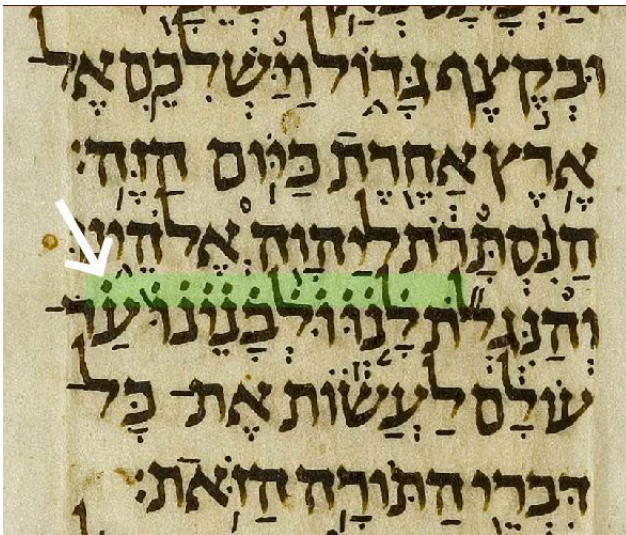 וּבְקֶ֣צֶף גָּד֑וֹל וַיַּשְׁלִכֵ֛ם אֶל
אֶ֥רֶץ אַחֶ֖רֶת כַּיּ֥וֹם הַזֶּֽה׃
הַ֨נִּסְתָּרֹ֔ת לַיהוָ֖ה אֱלֹהֵ֑ינוּ
וְהַנִּגְלֹ֞ת לָ֤ׄנׄוּׄ וּׄלְׄבָׄנֵ֙ׄיׄנׄוּ֙ׄ עַׄד
עוֹלָ֔ם לַעֲשׂ֕וֹת אֶת כׇּל
דִּבְרֵ֖י הַתּוֹרָ֥ה הַזֹּֽאת׃